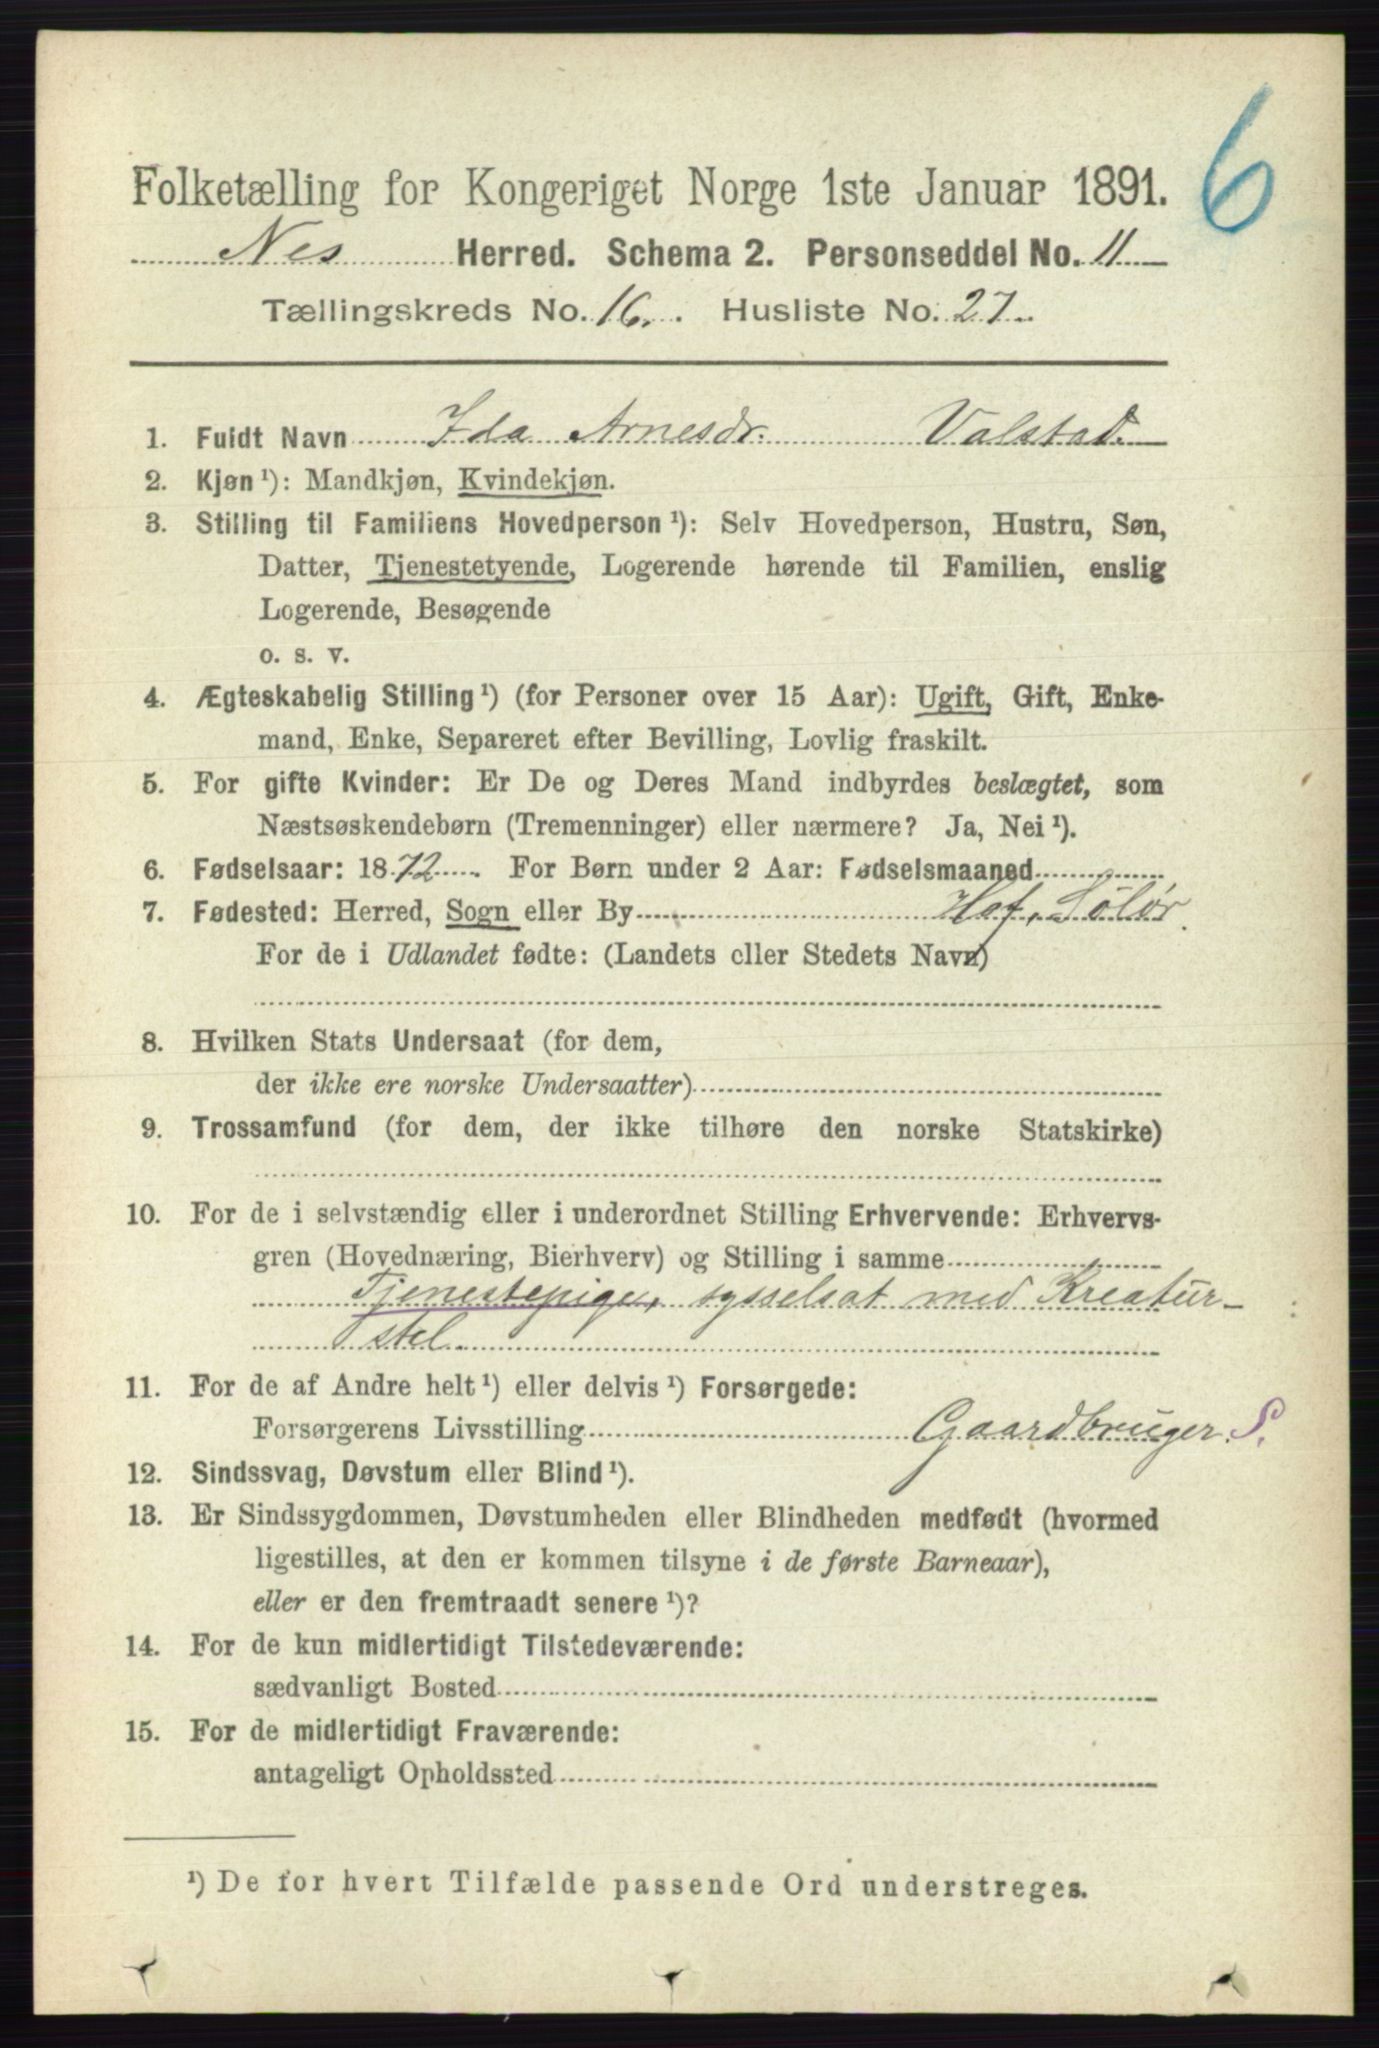 6
Folketælling for Kongeriget Norge 1ste Januar 1891.
Nes Herred. Schema 2. Personseddel No. 11
Tællingskreds No. 16. Husliste No. 27
1. Fuldt Navn Ida Arnesdr. Valstad.
2. Kjøn ¹): Mandkjøn, Kvindekjøn.
3. Stilling til Familiens Hovedperson ¹): Selv Hovedperson, Hustru, Søn,
Datter, Tjenestetyende, Logerende hørende til Familien, enslig
Logerende, Besøgende
o. s. v.
4. Ægteskabelig Stilling ¹) (for Personer over 15 Aar): Ugift, Gift, Enke-
mand, Enke, Separeret efter Bevilling, Lovlig fraskilt.
5. For gifte Kvinder: Er De og Deres Mand indbyrdes beslægtet, som
Næstsøskendebørn (Tremenninger) eller nærmere? Ja, Nei ¹).
6. Fødselsaar: 1872. For Børn under 2 Aar: Fødselsmaaned
7. Fødested: Herred, Sogn eller By Hof, Sölör.
For de i Udlandet fødte: (Landets cller Stedets Navn)
8. Hvilken Stats Undersaat (for dem,
der ikke ere norske Undersaatter)
9. Trossamfund (for dem, der ikke tilhøre den norske Statskirke)
10. For de i selvstændig eller i underordnet Stilling Erhvervende: Erhvervs-
gren (Hovednæring, Bierhverv) og Stilling i samme
Tjenestepige, sysselsat med Kreatur-
stel
11. For de af Andre helt ¹) eller delvis ¹) Forsørgede:
Forsørgerens Livsstilling Gaardbruger. S.
12. Sindssvag, Døvstum eller Blind ¹).
13. Er Sindssygdommen, Døvstumheden eller Blindheden medfødt (hvormed
ligestilles, at den er kommen tilsyne i de første Barneaar),
eller er den fremtraadt senere ¹)?
14. For de kun midlertidigt Tilstedeværende:
sædvanligt Bosted
15. For de midlertidigt Fraværende:
antageligt Opholdssted
¹) De for hvert Tilfælde passende Ord understreges.